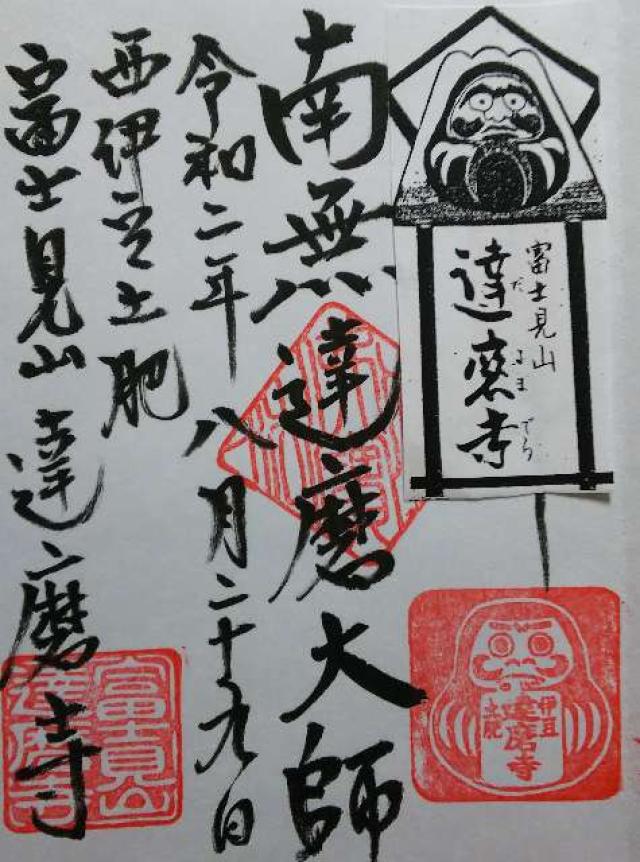 富士見山
達磨寺
だ るま でら
南無達磨大師
令和二年八月二十九日
西伊豆土肥
富士見山 達磨寺
伊豆
土肥
達磨寺
富士見山
達磨寺